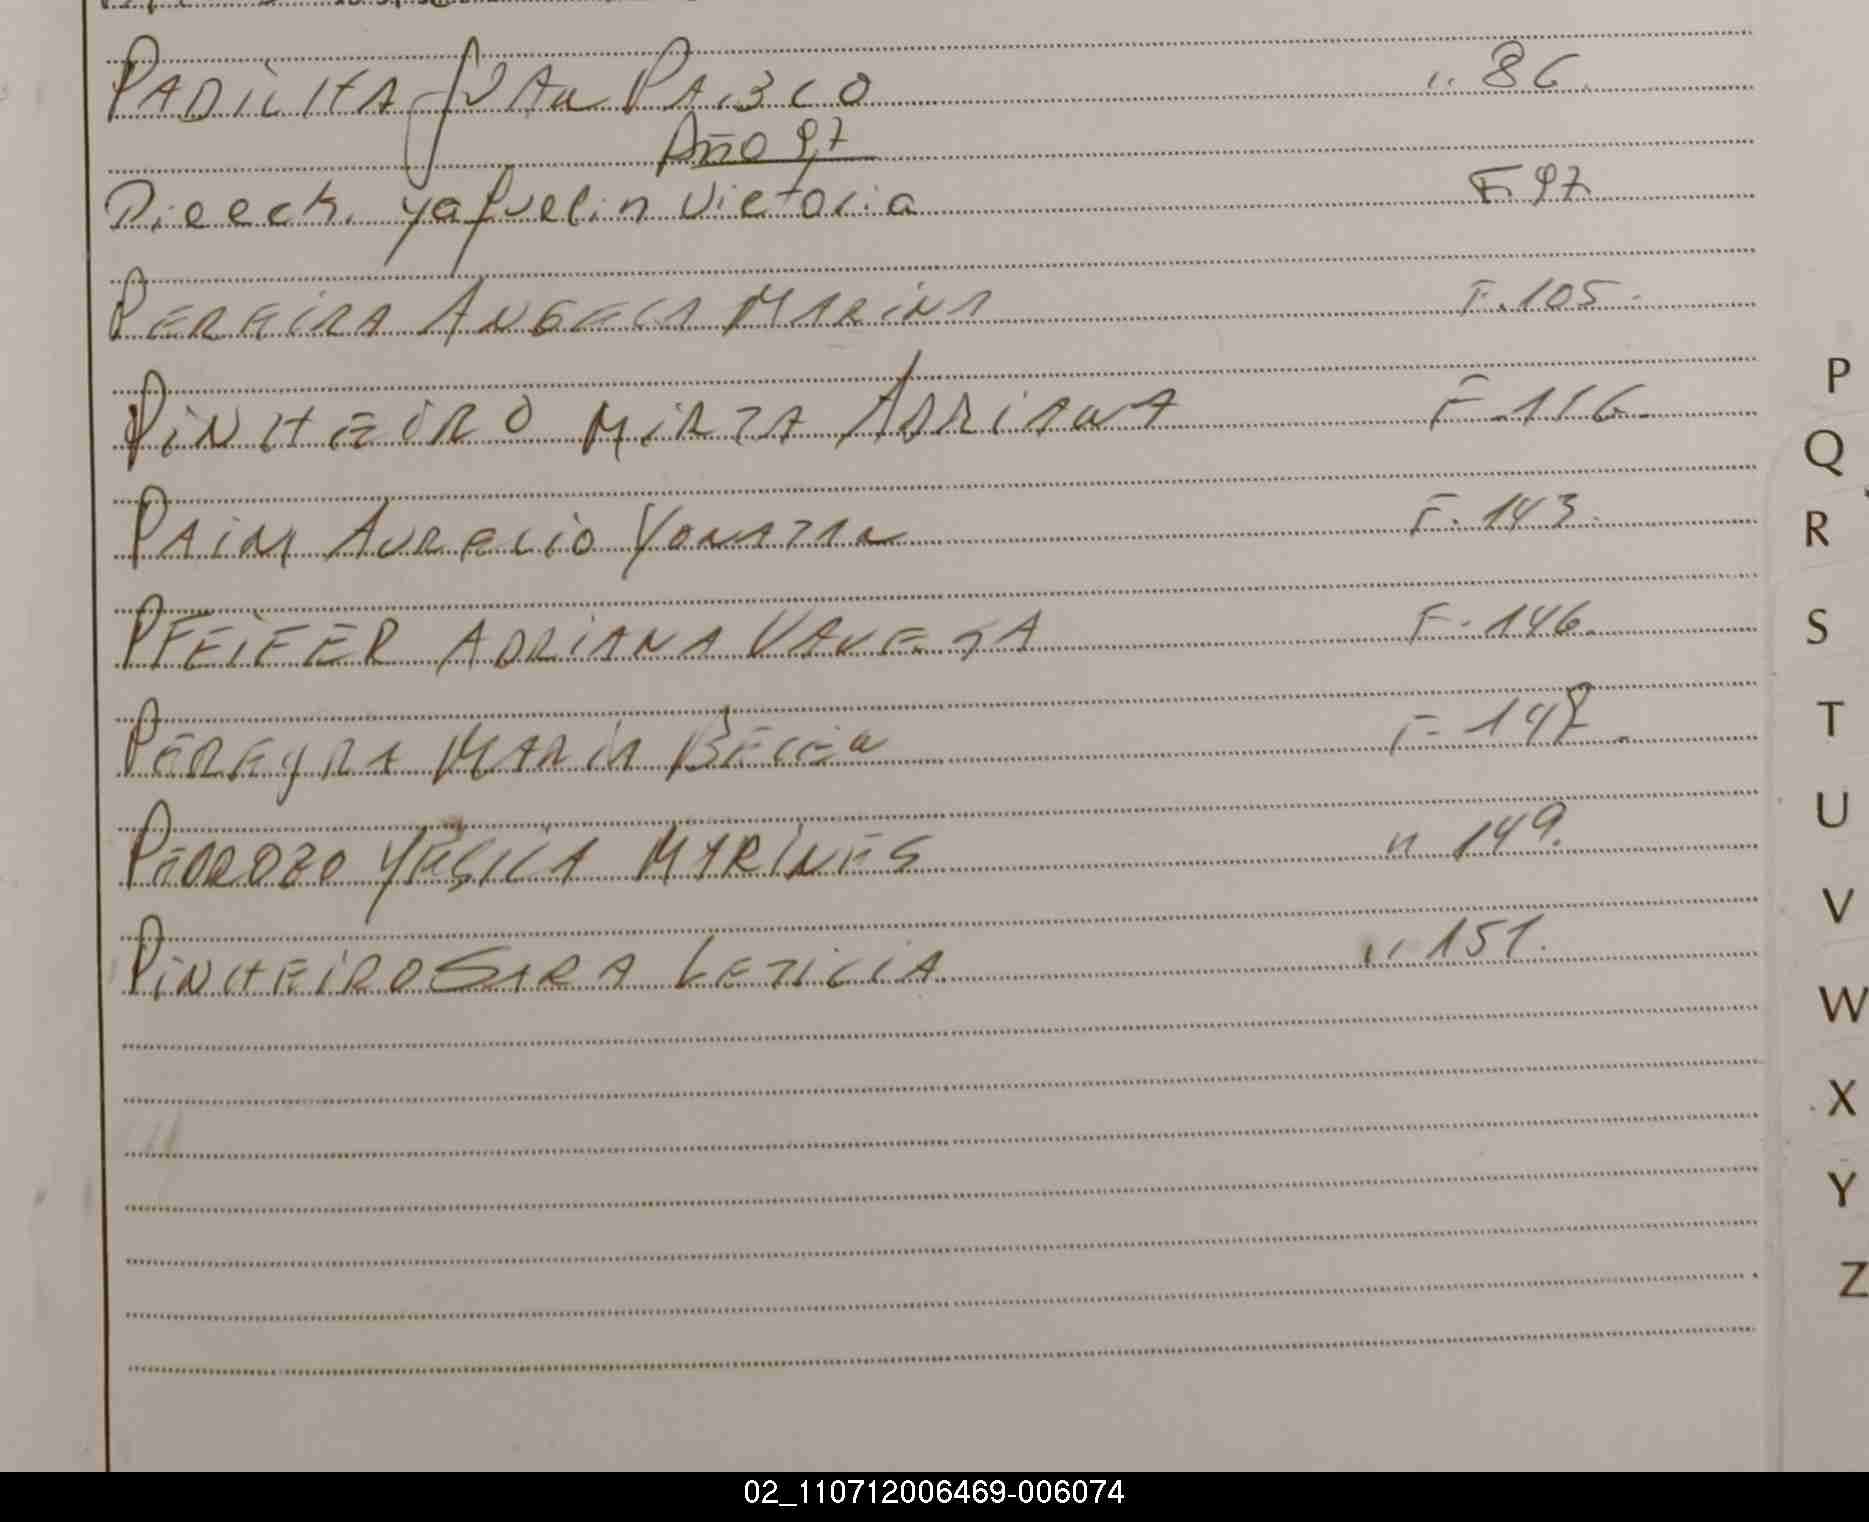 PADILHA JUAN PABLO " 86.
Año 97
Pieeck. yaquelin Victoria F 97
PEREIRA ANGELA MARINA F. 105.
PINHEIRO MIRTA ADRIANA F. 116.
PAIM AURELIO YONATAN F. 143.
PFEIFER ADRIANA VANESA F. 146.
PEREYRA MARIA BELEN F- 147.
PEDROZO YESICA MARINES " 149.
PINHEIRO SARA LETICIA " 151.
P
Q
R
S
T
U
V
W
X
Y
Z
02_110712006469-006074